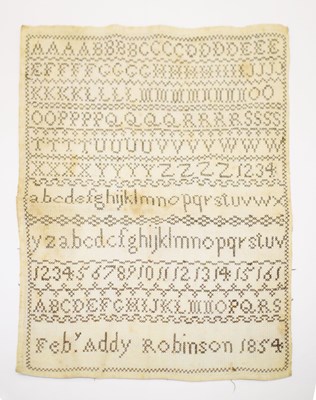 AAAABBBBCCCCDDDDEEE
EFFFFGGGGHHHHIIIIJJJJ
KKKKLLLLMMMMNNNNOO
OOPPPPQQQQRRRRSSSS
TTTTUUUUVVVVWWWW
XXXXYYYYZZZZ1234
abcdefghijklmnopqrstuvwx
yzabcdefghijklmnopqrstuv
12345678910111213141516 1
ABCDEFGHIJKLMNOPQRS
Feby Addy Robinson 1854